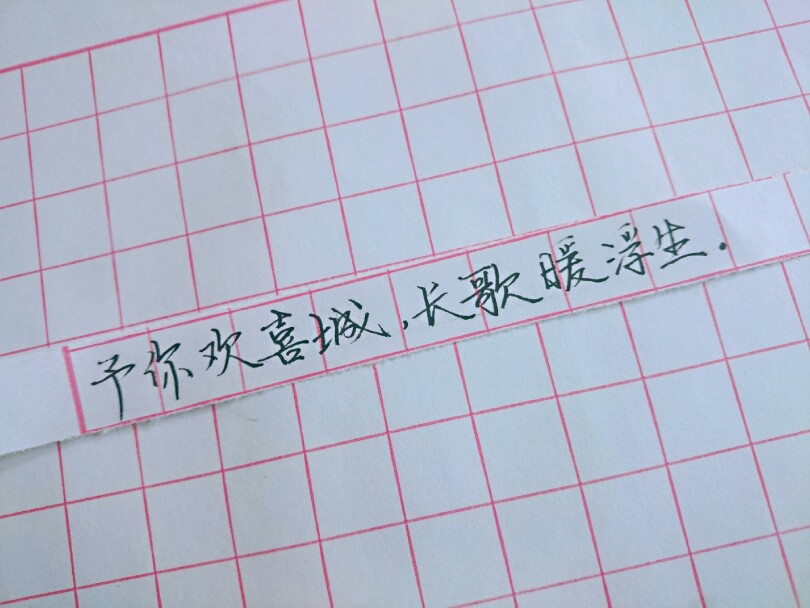 予你欢喜城,长歌暖浮生.